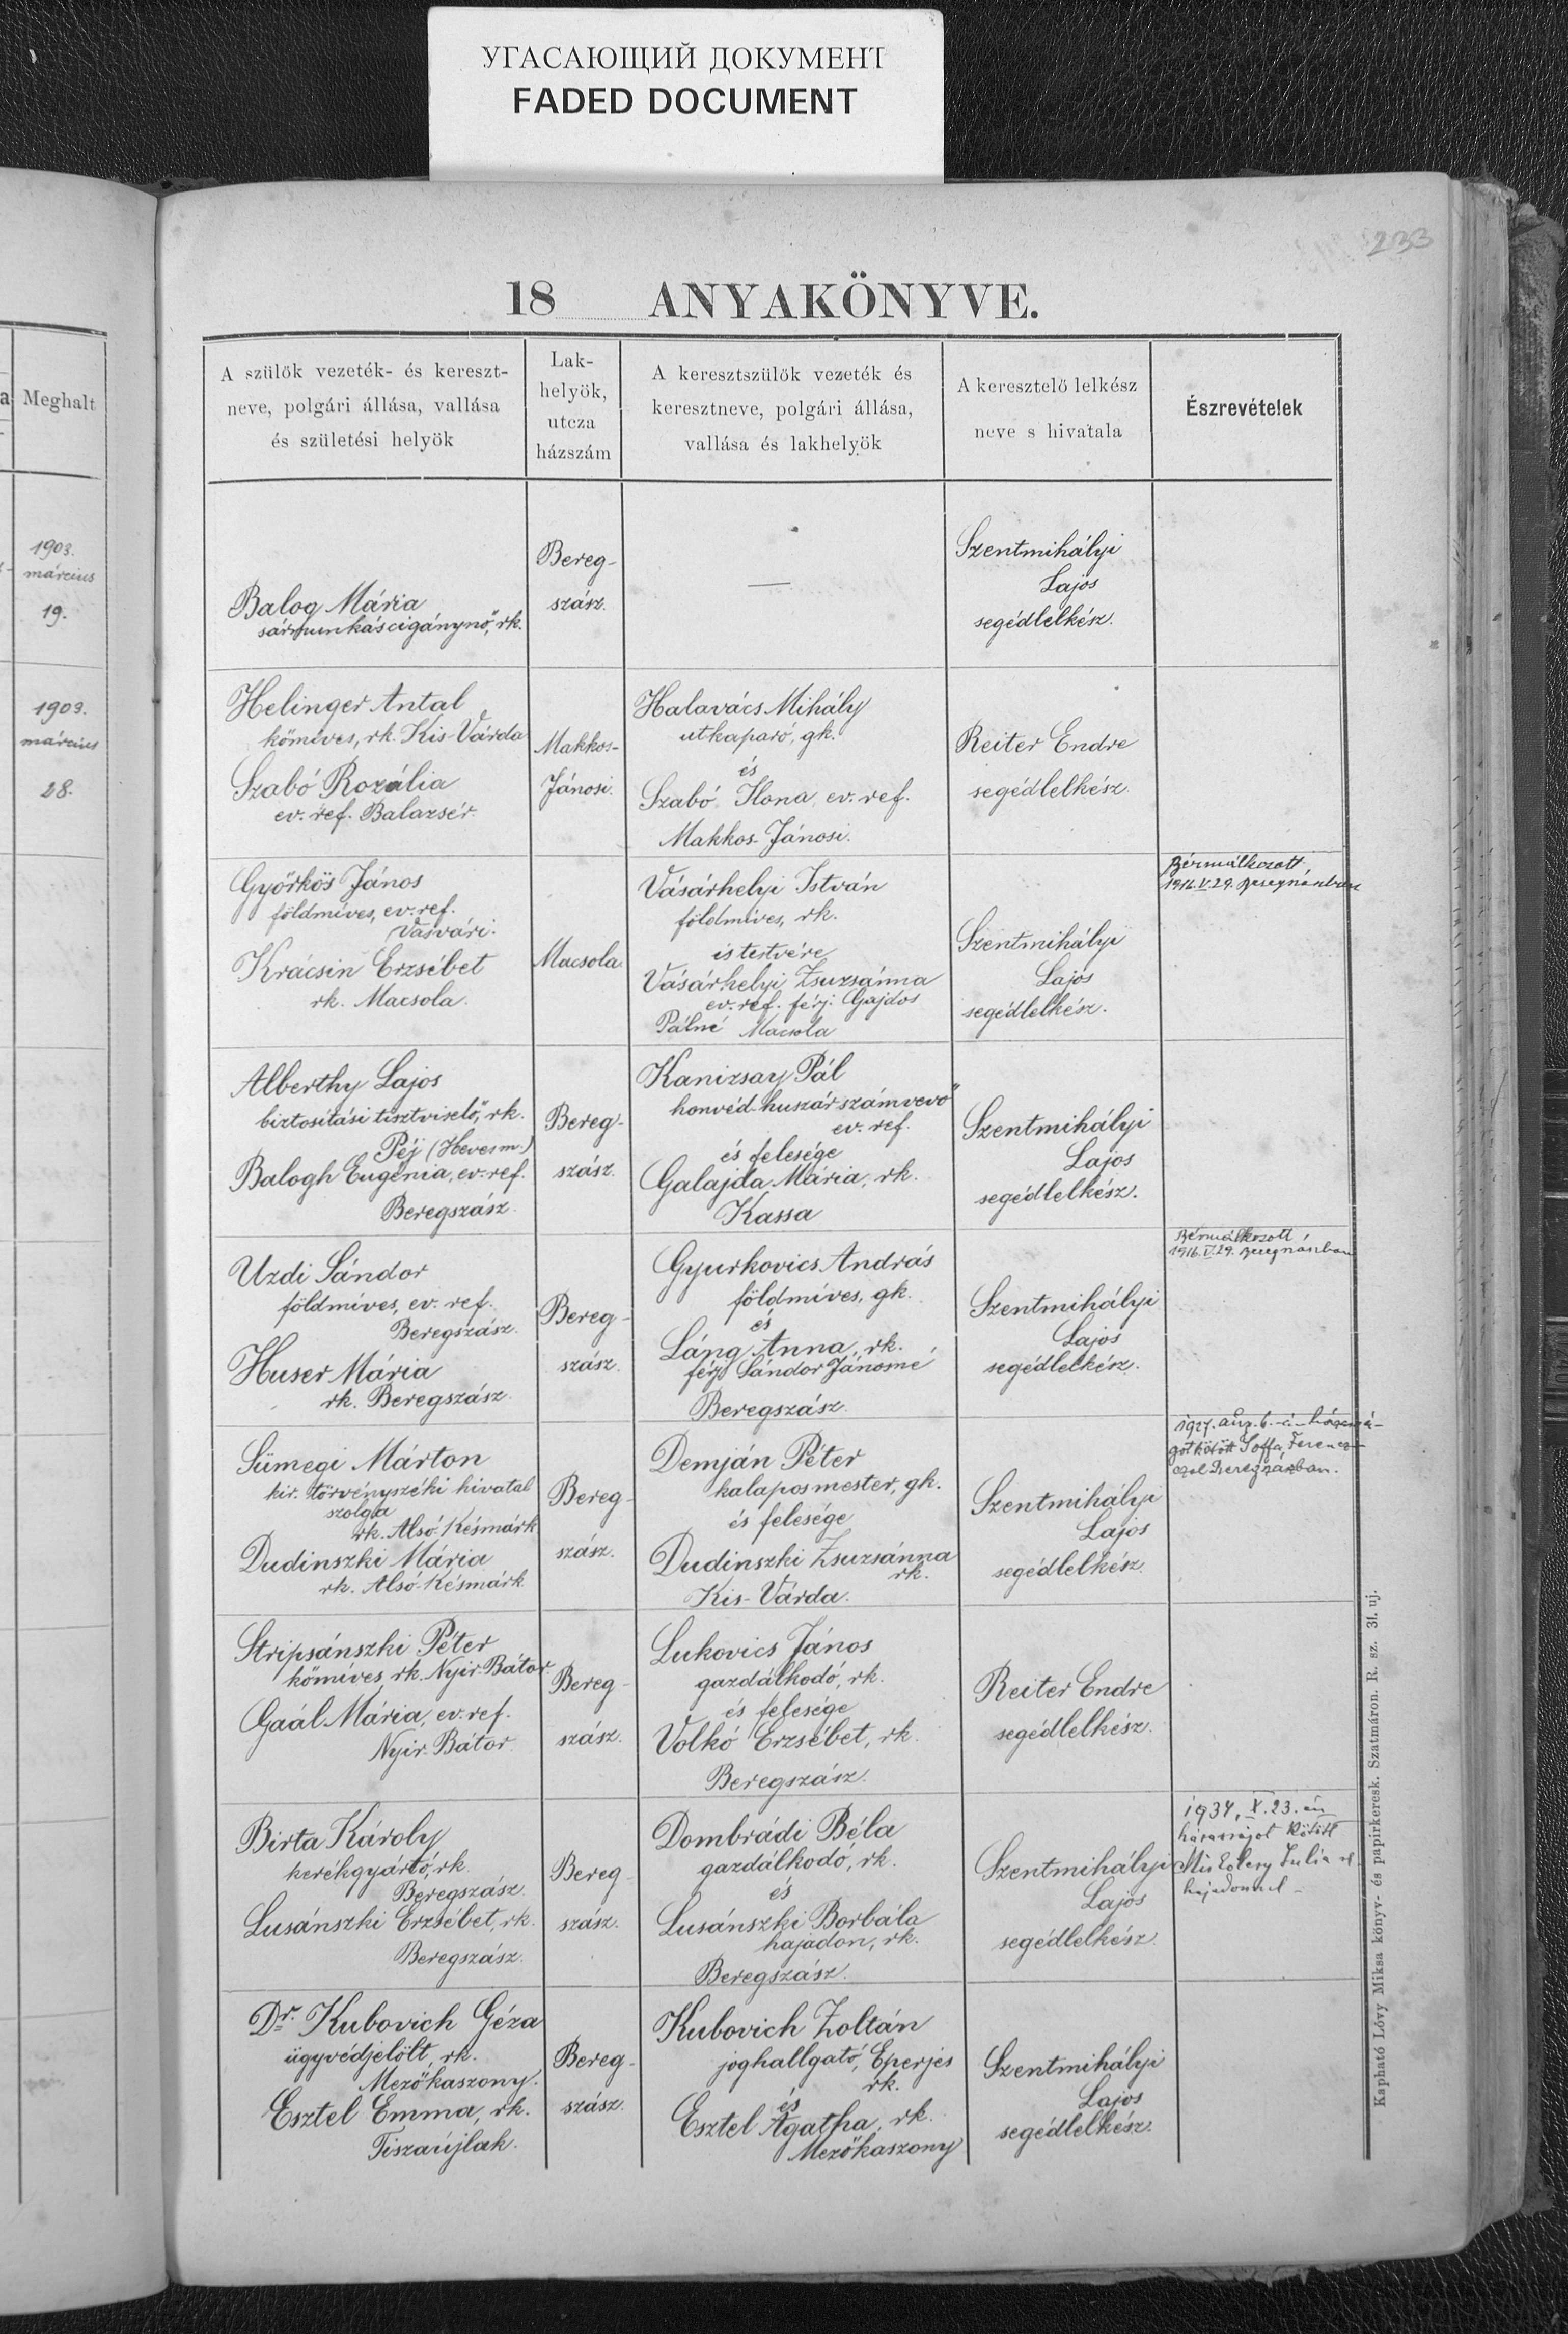 УГАСАЮЩИЙ ДОКУМЕНТ
FADED DOCUMENT
233
18 ANYAKÖNYVE.
Meghalt
1903.
március
19.
1903.
március
28.
A szülők vezeték- és kereszt-
neve, polgári állása, vallása
és születési helyök
Lak-
helyök,
utcza
házszám
A keresztszülök vezeték és
keresztneve, polgári állása,
vallása és lakhelyök
A keresztelő lelkész
neve s hivatala
Észrevételek
Balog Mária
sármunkás cigánynő, rk.
Bereg-
szász.
—
Szentmihályi
Lajos
segédlelkész.
Helinger Antal
kőmíves, rk. Kis-Várda
Szabó Rozália
ev. ref. Balazsér.
Makkos-
Jánosi.
Halavács Mihály
utkaparó, gk.
és
Szabó Ilona, ev. ref.
Makkos-Jánosi.
Reiter Endre
segédlelkész.
Győrkös János
földmíves, ev. ref.
Vásvári.
Krácsin Erzsébet
rk. Macsola.
Macsola.
Vásárhelyi István
földmíves, rk.
és testvére
Vásárhelyi Zsuzsánna
ev. ref. férj. Gajdos
Pálné Macsola
Szentmihályi
Lajos
segédlelkész.
Bérmálkozott
1916.V.29.
Alberthy Lajos
biztosítási tisztviselő, rk.
Péj (Heves m.)
Balogh Eugénia, ev. ref.
Beregszász.
Bereg-
szász.
Kanizsay Pál
honvéd-huszár számvevő
ev. ref.
és felesége
Galajda Mária, rk.
Kassa
Szentmihályi
Lajos
segédlelkész.
Uzdi Sándor
földmíves, ev. ref.
Beregszász.
Huser Mária
rk. Beregszász.
Bereg-
szász.
Gyurkovics András
földmíves, gk.
és
Láng Anna, rk.
férj. Sándor Jánosné
Beregszász.
Szentmihályi
Lajos
segédlelkész.
Bérmálkozott
1916.V.29.
Sümegi Márton
kir. törvényszéki hivatal
szolga
rk. Alsó-Késmárk
Dudinszki Mária
rk. Alsó-Késmárk
Bereg-
szász.
Demján Péter
kalapos mester, gk.
és felesége
Dudinszki Zsuzsánna
rk.
Kis-Várda.
Szentmihályi
Lajos
segédlelkész.
1927. aug. 6.-á- házassá-
got kötött Soffa Ferencz-
Stripsánszki Péter
kőmíves, rk. Nyír-Bátor.
Gaál Mária, ev. ref.
Nyír-Bátor.
Bereg-
szász.
Lukovics János
gazdálkodó, rk.
és felesége
Volkó Erzsébet, rk.
Beregszász.
Reiter Endre
segédlelkész.
Birta Károly
kerékgyártó, rk.
Beregszász.
Lusánszki Erzsébet, rk.
Beregszász.
Bereg-
szász.
Dombrádi Béla
gazdálkodó, rk.
és
Lusánszki Borbála
hajadon, rk.
Beregszász.
Szentmihályi
Lajos
segédlelkész.
1934, X.23.-án
házasságot kötött
Julia
hajadonnal
Dr. Kubovich Géza
ügyvédjelölt, rk.
Mezőkaszony.
Esztel Emma, rk.
Tiszaújlak.
Bereg-
szász.
Kubovich Zoltán
joghallgató, Eperjes
rk.
és
Esztel Ágatha, rk.
Mezőkaszony
Szentmihályi
Lajos
segédlelkész.
Kapható Lővy Miksa könyv- és papirkeresk. Szatmáron. R. sz. 31. uj.